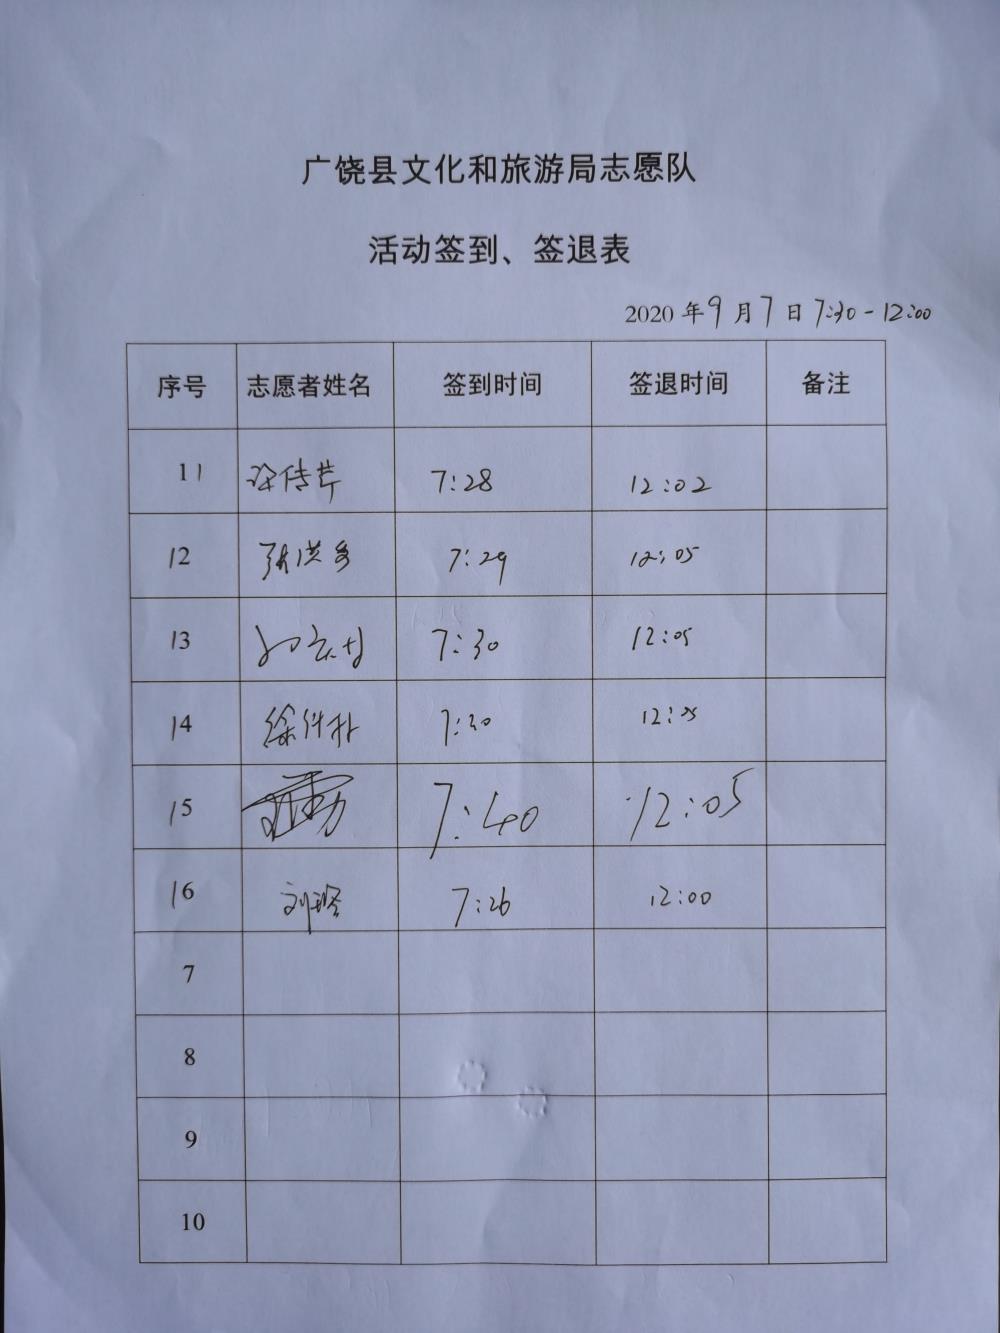 广饶县文化和旅游局志愿队
活动签到、签退表
2020 年 9 月 7 日 7:30-12:00
序号 志愿者姓名 签到时间 签退时间 备注
11 7:28 12:02
12 7:29 12:05
13 7:30 12:05
14 7:30 12:05
15 7:40 12:05
16 7:26 12:00
7
8
9
10